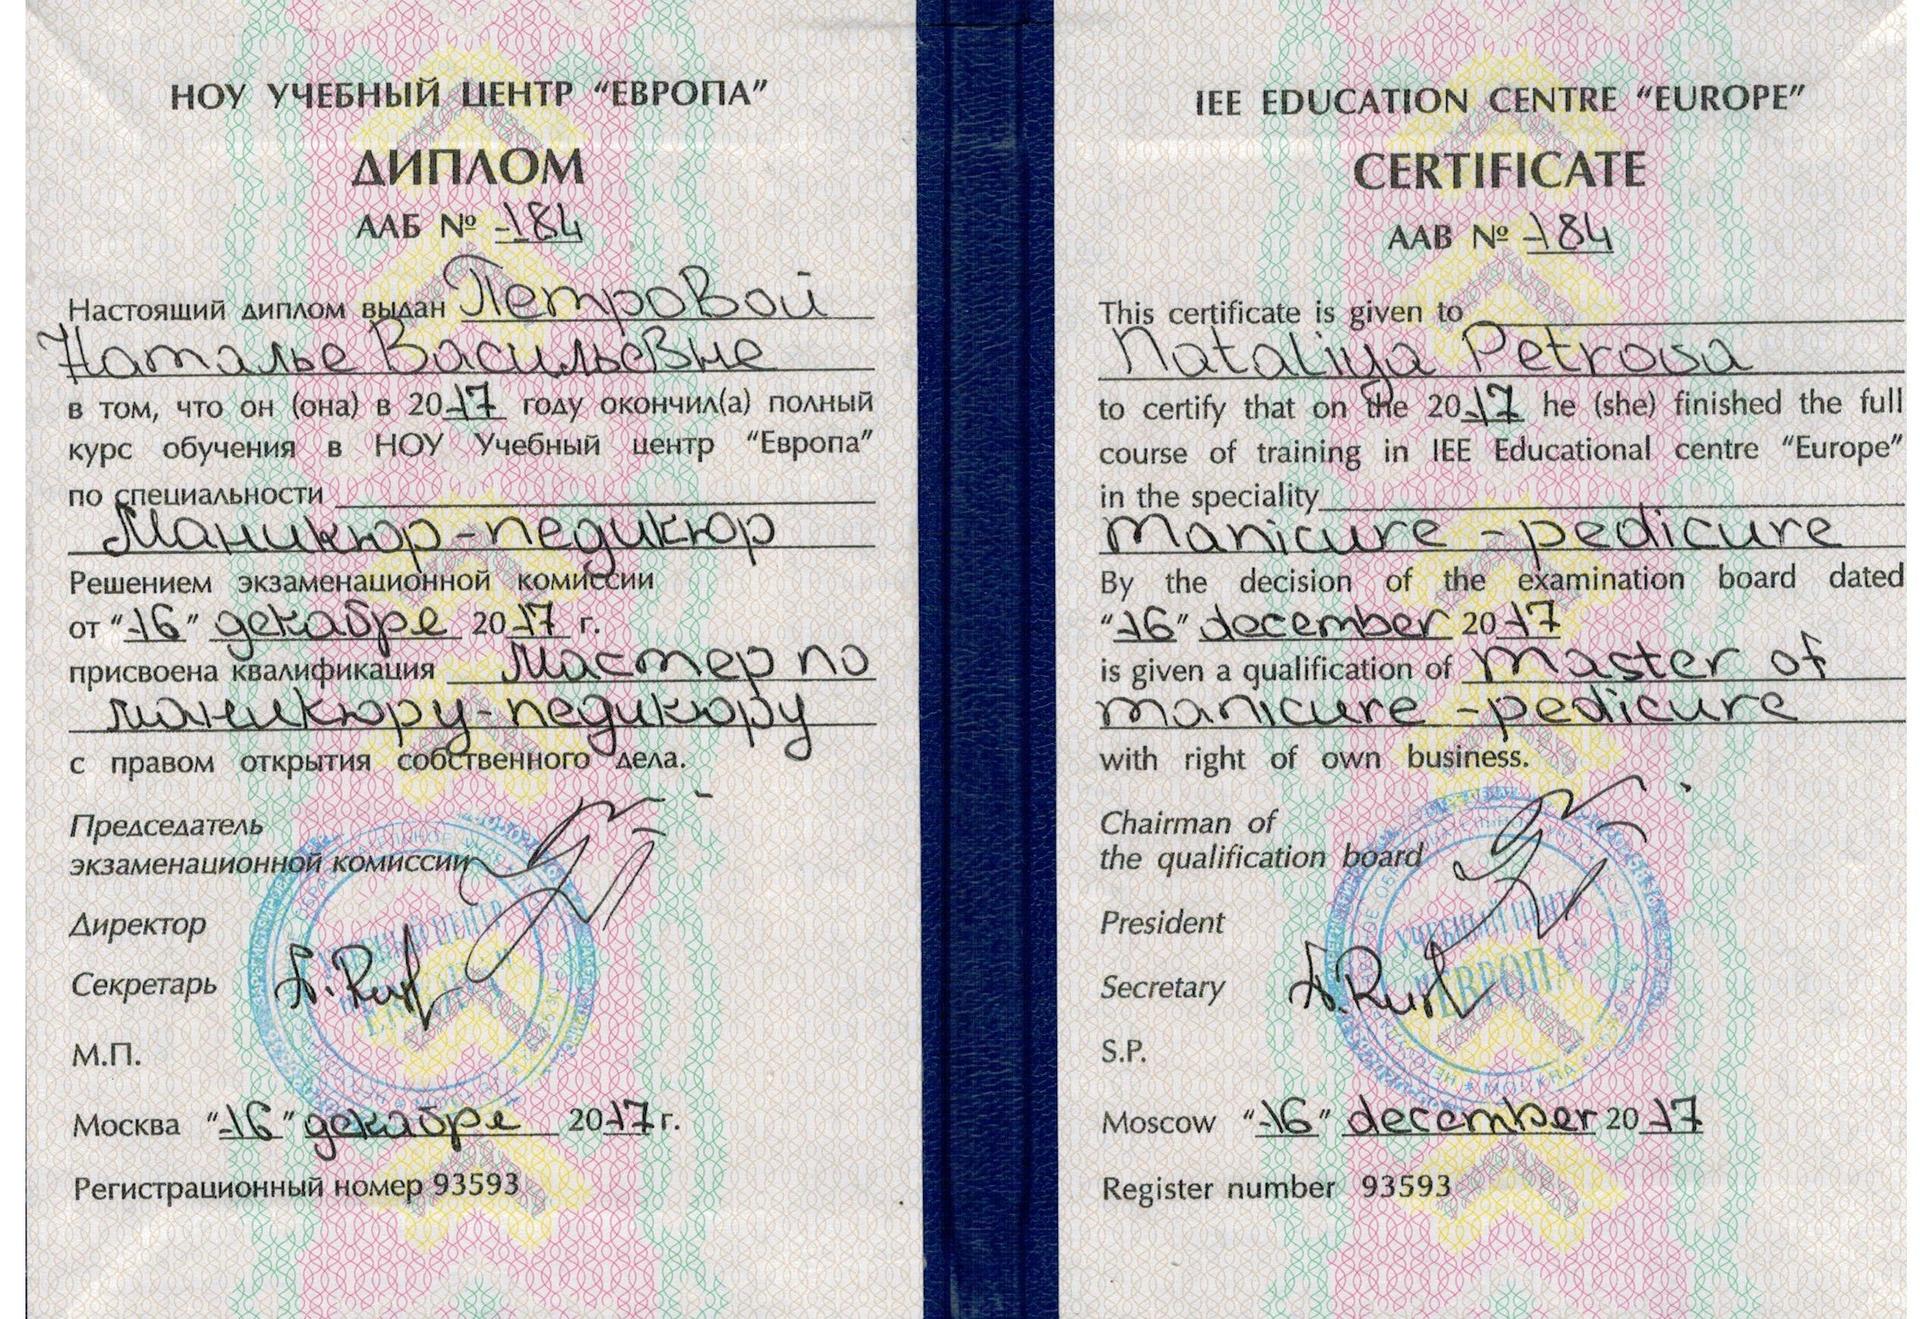 НОУ УЧЕБНЫЙ ЦЕНТР "ЕВРОПА"
ДИПЛОМ
ААБ № 184
Настоящий диплом выдан Петровой
Наталье Васильевне
в том, что он (она) в 2017 году окончил(а) полный
курс обучения в НОУ Учебный центр "Европа"
по специальности
Маникюр-педикюр
Решением экзаменационной комиссии
от "16" декабря 2017 г.
присвоена квалификация Мастер по
маникюру-педикюру
с правом открытия собственного дела.
Председатель
экзаменационной комиссии
Директор
Секретарь
М.П.
УЧЕБНЫЙ ЦЕНТР
ЕВРОПА
Москва "16" декабря 2017 г.
Регистрационный номер 93593
IEE EDUCATION CENTRE "EUROPE"
CERTIFICATE
AAB № 184
This certificate is given to
Nataliya Petrova
to certify that on the 2017 he (she) finished the full
course of training in IEE Educational centre "Europe"
in the speciality
manicure-pedicure
By the decision of the examination board dated
"16" december 2017
is given a qualification of master of
manicure-pedicure
with right of own business.
Chairman of
the qualification board
President
Secretary
S.P.
УЧЕБНЫЙ ЦЕНТР
ЕВРОПА
Moscow "16" december 2017
Register number 93593